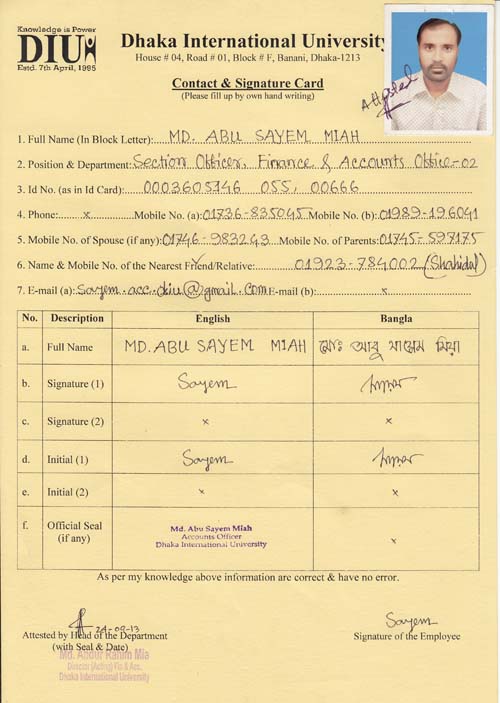 Knowledge is Power
DIU
Estd. 7th April, 1995
Dhaka International University
House # 04, Road # 01, Block # F, Banani, Dhaka-1213
Contact & Signature Card
(Please fill up by own hand writing)
Attested
1. Full Name (In Block Letter): MD. ABU SAYEM MIAH
2. Position & Department: Section Officer, Finance & Accounts Office-02
3. Id No. (as in Id Card): 0003605746 055, 00666
4. Phone: x Mobile No. (a): 01736-835045 Mobile No. (b): 01989-196041
5. Mobile No. of Spouse (if any): 01746-983243 Mobile No. of Parents: 01745-597175
6. Name & Mobile No. of the Nearest Friend/Relative: 01923-784002 (Shahidul)
7. E-mail (a): Sayem.acc.diu@gmail.com E-mail (b): x
No. Description English Bangla
a. Full Name MD. ABU SAYEM MIAH মোঃ আবু সায়েম মিয়া
b. Signature (1) Sayem সায়েম
c. Signature (2) x x
d. Initial (1) Sayem সায়েম
e. Initial (2) x x
f. Official Seal (if any) Md. Abu Sayem Miah
Accounts Officer
Dhaka International University x
As per my knowledge above information are correct & have no error.
24-09-13 Sayem
Attested by Head of the Department Signature of the Employee
(with Seal & Date)
Md. Abdur Rahim Mia
Director (Acting) Fin & Acc.
Dhaka International University